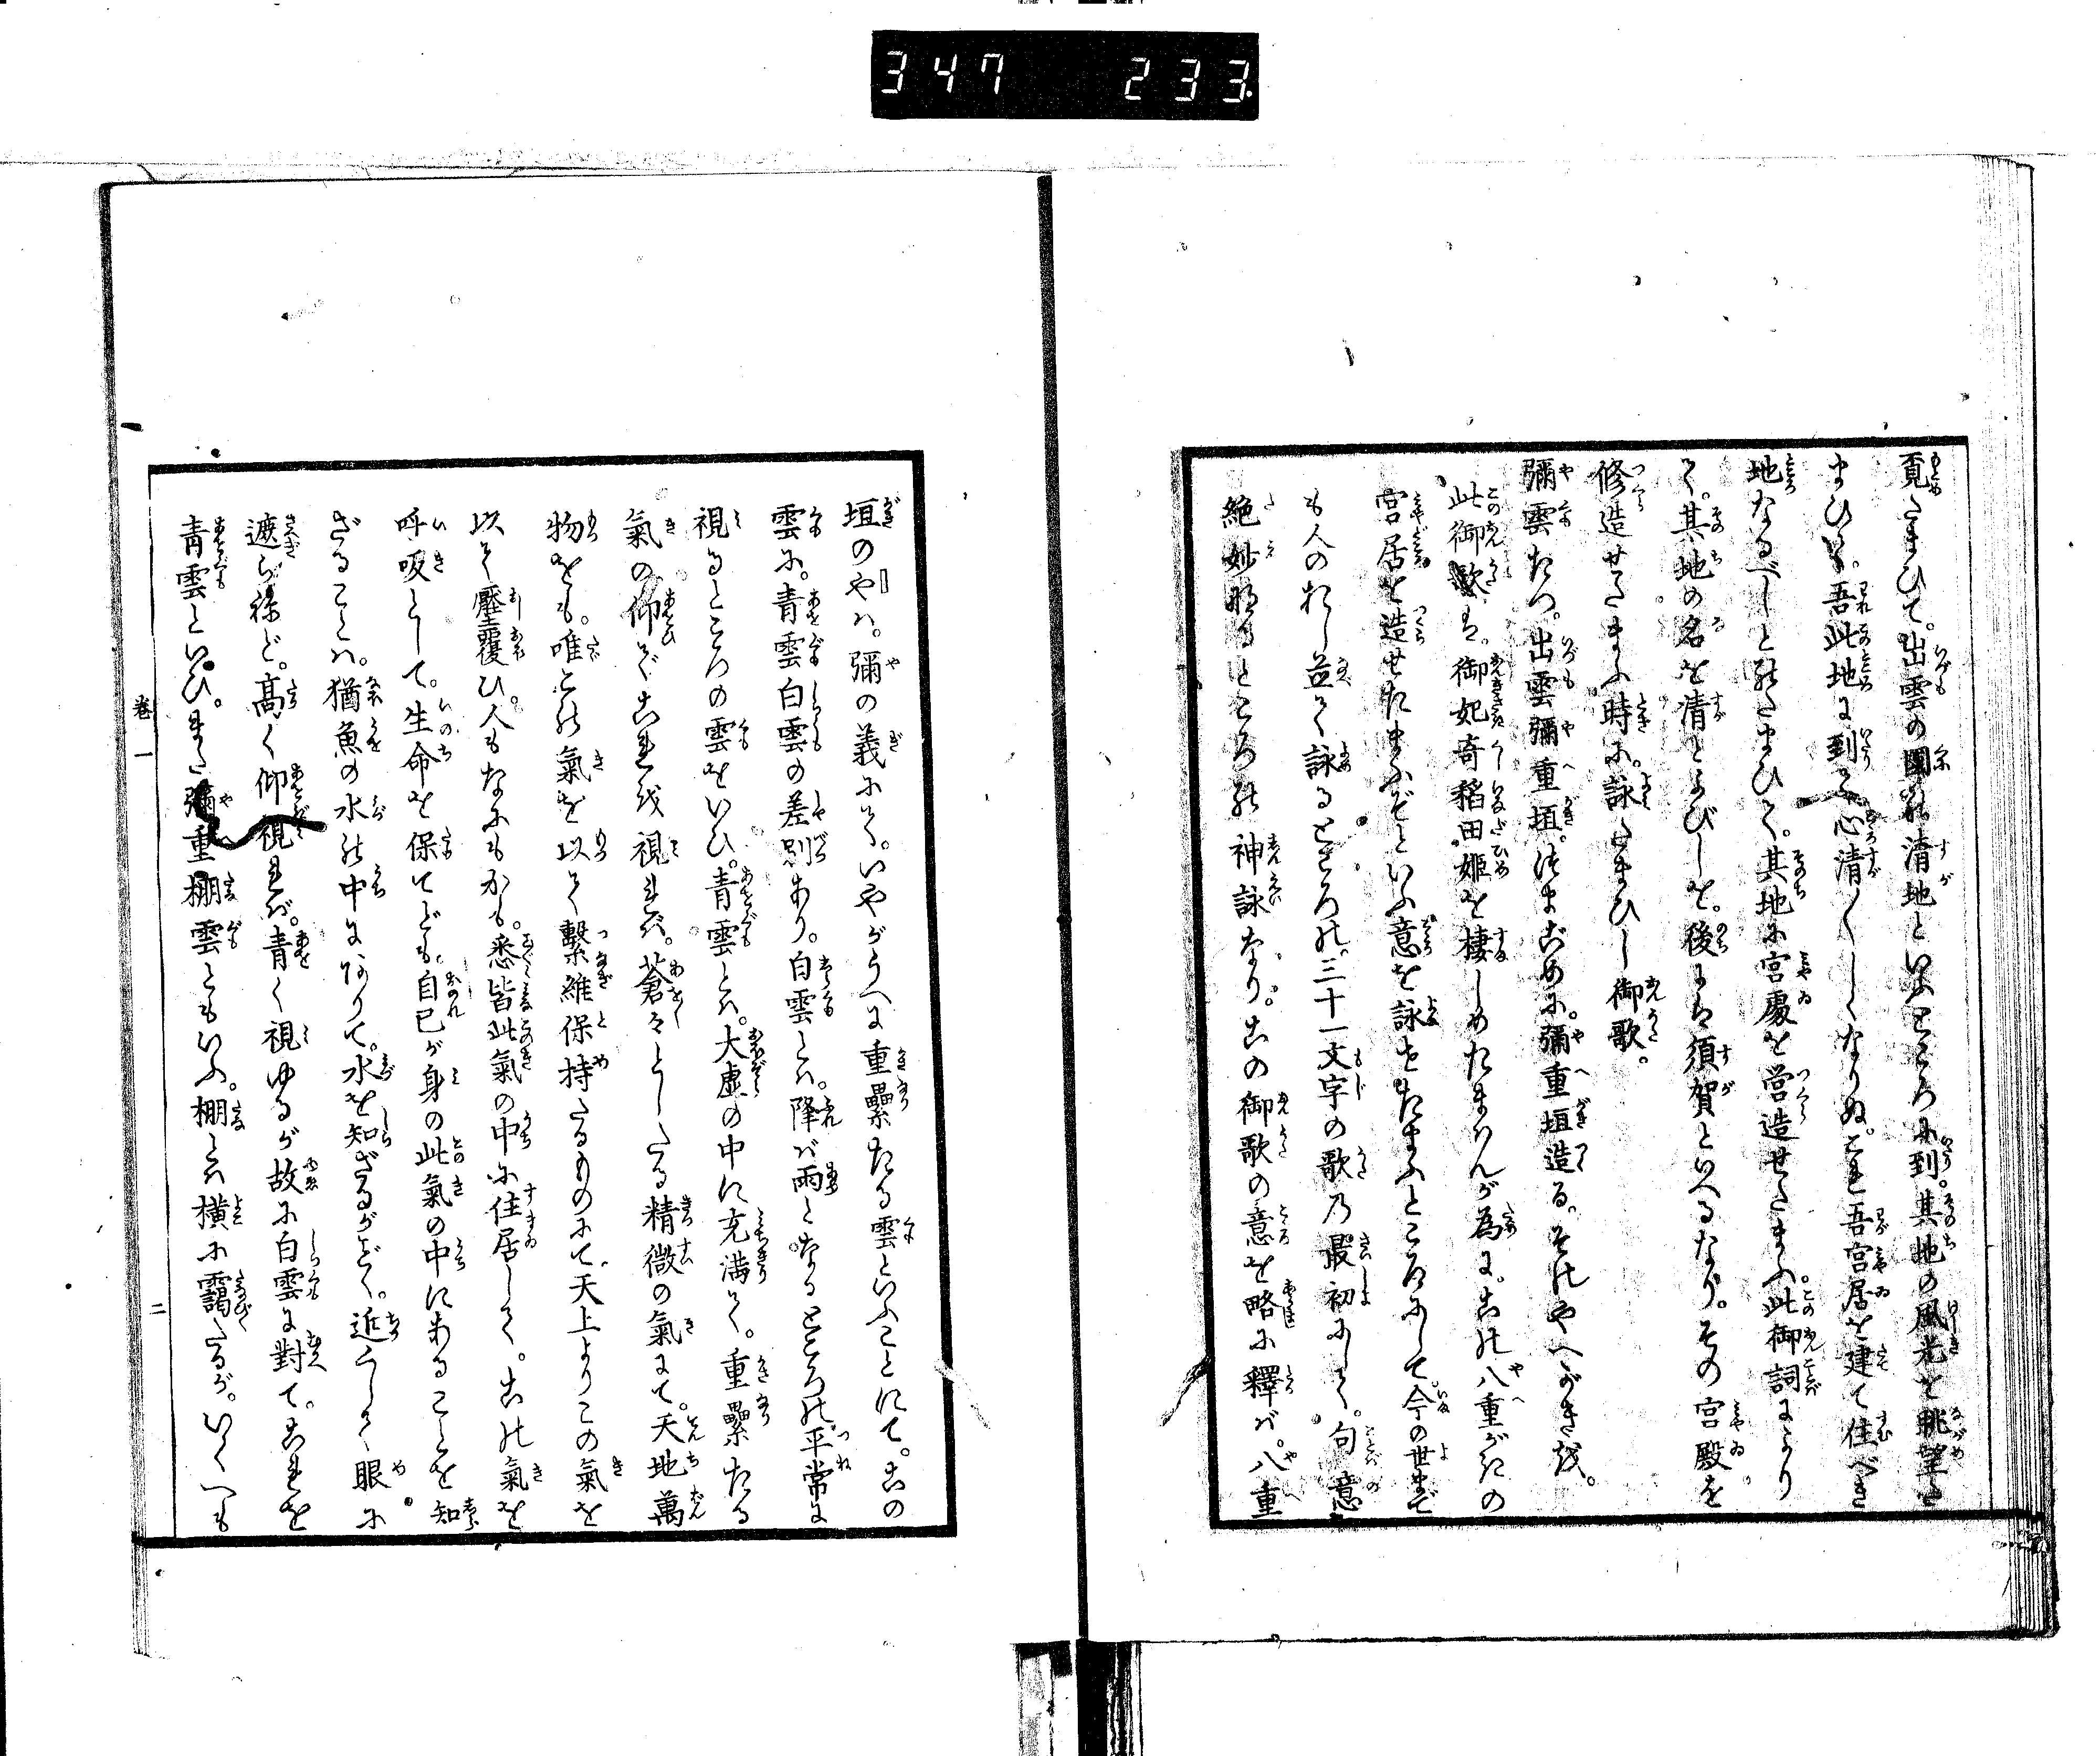 347 233.
覓たまひて。出雲の國の清地といふところに到。其地の風光を眺望た
まひて。吾此地に到て心清〻しくなりぬ。これ吾宮居を建て住べき
地なるべしとのたまひて。其地に宮處を営造せたまふ。此御詞により
て。其地の名を清とよびしを。後には須賀といへるなり。その宮殿を
修造せたまふ時に。詠たまひし御歌。
彌雲たつ。出雲彌重垣。つまごめに。彌重垣造る。そのやへがきを。
此御歌は。御妃奇稲田姫を棲しめたまはんが為に。この八重がきの
宮居を造せたまふぞといふ意を詠せたまふところにして今の世まで
も人のおし並て詠るところの。三十一文字の歌乃最初にして。句意
絶妙なるところの神詠なり。この御歌の意を略に釋ば。八重
垣のやハ。彌の義にて。いやがうへに重疊たる雲といふことにて。この
雲に。青雲白雲の差別あり。白雲とハ。降バ雨となるところの。平常に
視るところの雲をいひ。青雲とハ。大虚の中に充満て。重疊たる
氣の仰ぎこれを視れバ。蒼々としたる精微の氣にて。天地萬
物をも。唯この氣を以て繫維保持たるものにて。天上よりこの氣を
以て壓覆ひ。人もなにもかも。悉皆此氣の中に住居して。この氣を
呼吸として。生命を保てども。自己が身の此氣の中にあることを知
ざることハ。猶魚の水の中にありて。水を知ざるがごとく。近くして眼に
遮ら祢ど。高く仰視れバ。青く視ゆるが故に白雲に對て。これを
青雲といひ。また彌重棚雲ともいふ。棚とハ横に靄たるが。いくへも
巻一
二